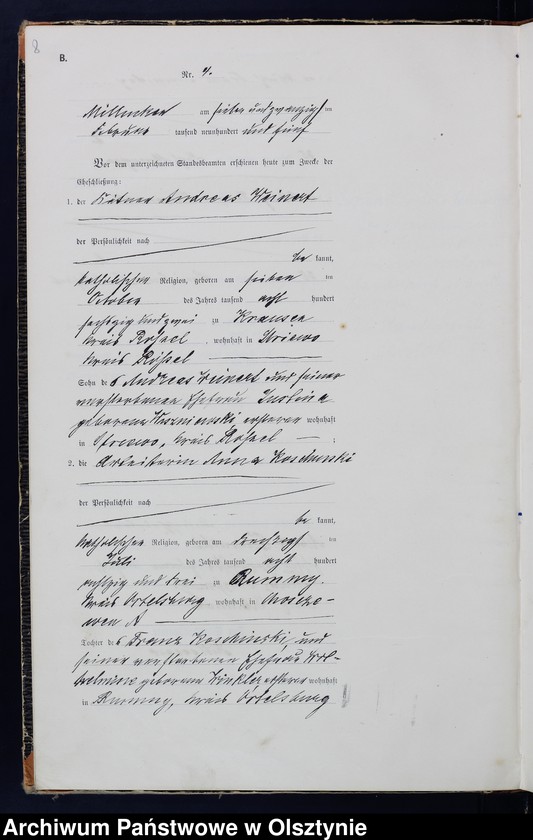 8
B.
Nr. 4.
am sieben und zwanzigsten
Februar tausend neunhundert und fünf
Vor dem unterzeichneten Standesbeamten erschienen heute zum Zwecke der
Eheschließung:
1. der Kätner Andreas Weinert
der Persönlichkeit nach
be kannt,
katholischer Religion, geboren am sieben ten
October des Jahres tausend acht hundert
sechszig und zwei zu Krausen
Kreis Rössel , wohnhaft in
Kreis Rössel
Sohn des Andreas Weinert und seiner
verstorbenen Ehefrau Justina
geborene ersterer wohnhaft
in Kreis Rössel ;
2. die Arbeiterin Anna Koschinski
der Persönlichkeit nach
be kannt,
katholischer Religion, geboren am ten
Juli des Jahres tausend acht hundert
achtzig und drei zu Rummy,
Kreis Ortelsburg wohnhaft in
Tochter des Franz Koschinski, und
seiner verstorbenen Ehefrau Wil-
helmine geborene Winkler ersterer wohnhaft
in Rummy, Kreis Ortelsburg
Archiwum Państwowe w Olsztynie